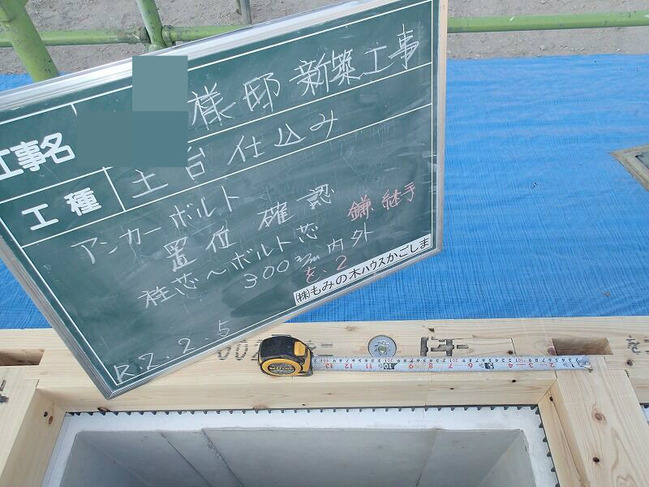 工事名 様邸 新築工事
工種 土台仕込み
アンカーボルト
置位 確認
柱芯～ボルト芯 鎌継手
300㎜内外
を.2
㈱もみの木ハウスかごしま
R2.2.5